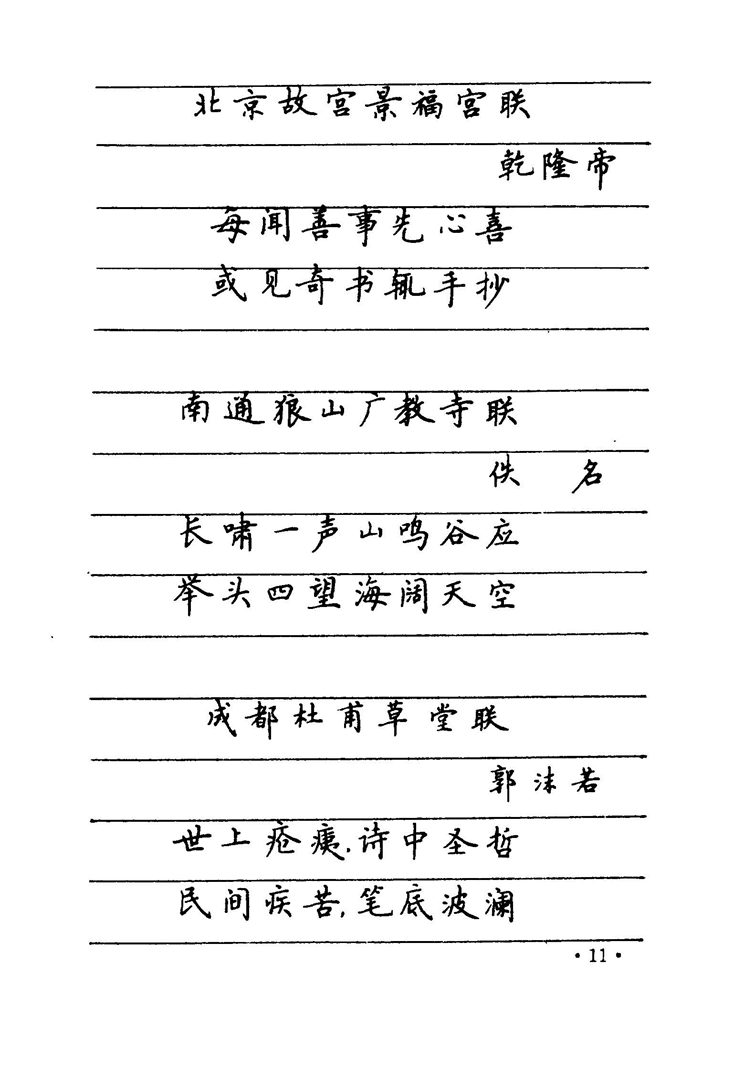 北京故宫景福宫联
乾隆帝
每闻善事先心喜
或见奇书辄手抄
南通狼山广教寺联
佚 名
长啸一声山鸣谷应
举头四望海阔天空
成都杜甫草堂联
郭沫若
世上疮痍,诗中圣哲
民间疾苦,笔底波澜
·11·